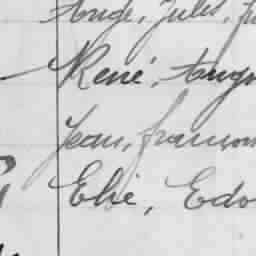 Ange, Jules,
René, Aug
Jean, Franço
Elie, Edo